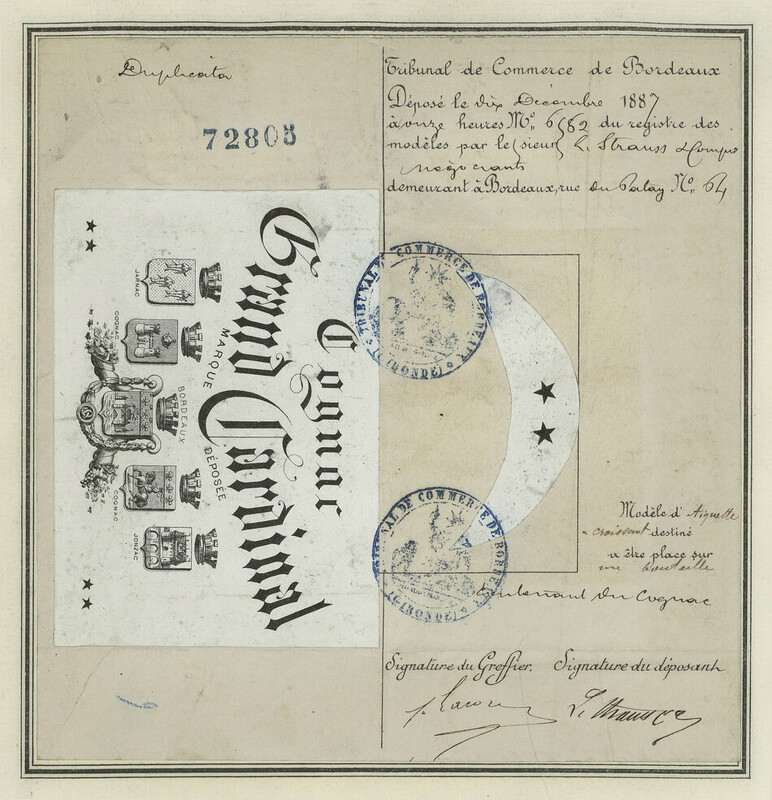 Duplicata
72805
Cognac
Grand Cardinal
MARQUE DÉPOSÉE
JARNAC
COGNAC
BORDEAUX
COGNAC
JONZAC
Tribunal de Commerce de Bordeaux
Déposé le dix Décembre 1887
à onze heures No. 6582 du registre des
modèles par le sieur L. Strauss & Comp
négociants
demeurant à Bordeaux, rue du No. 64
TRIBUNAL DE COMMERCE DE BORDEAUX
(GIRONDE)
TRIBUNAL DE COMMERCE DE BORDEAUX
(GIRONDE)
Modèle d'
croissant destiné
a être place sur
une bouteille
contenant du Cognac
Signature du Greffier. Signature du déposant
L. Strauss